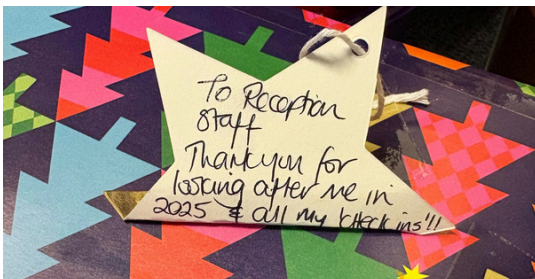 To Reception
Staff
Thankyou for
looking after me in
2025 & all my 'check ins'!!